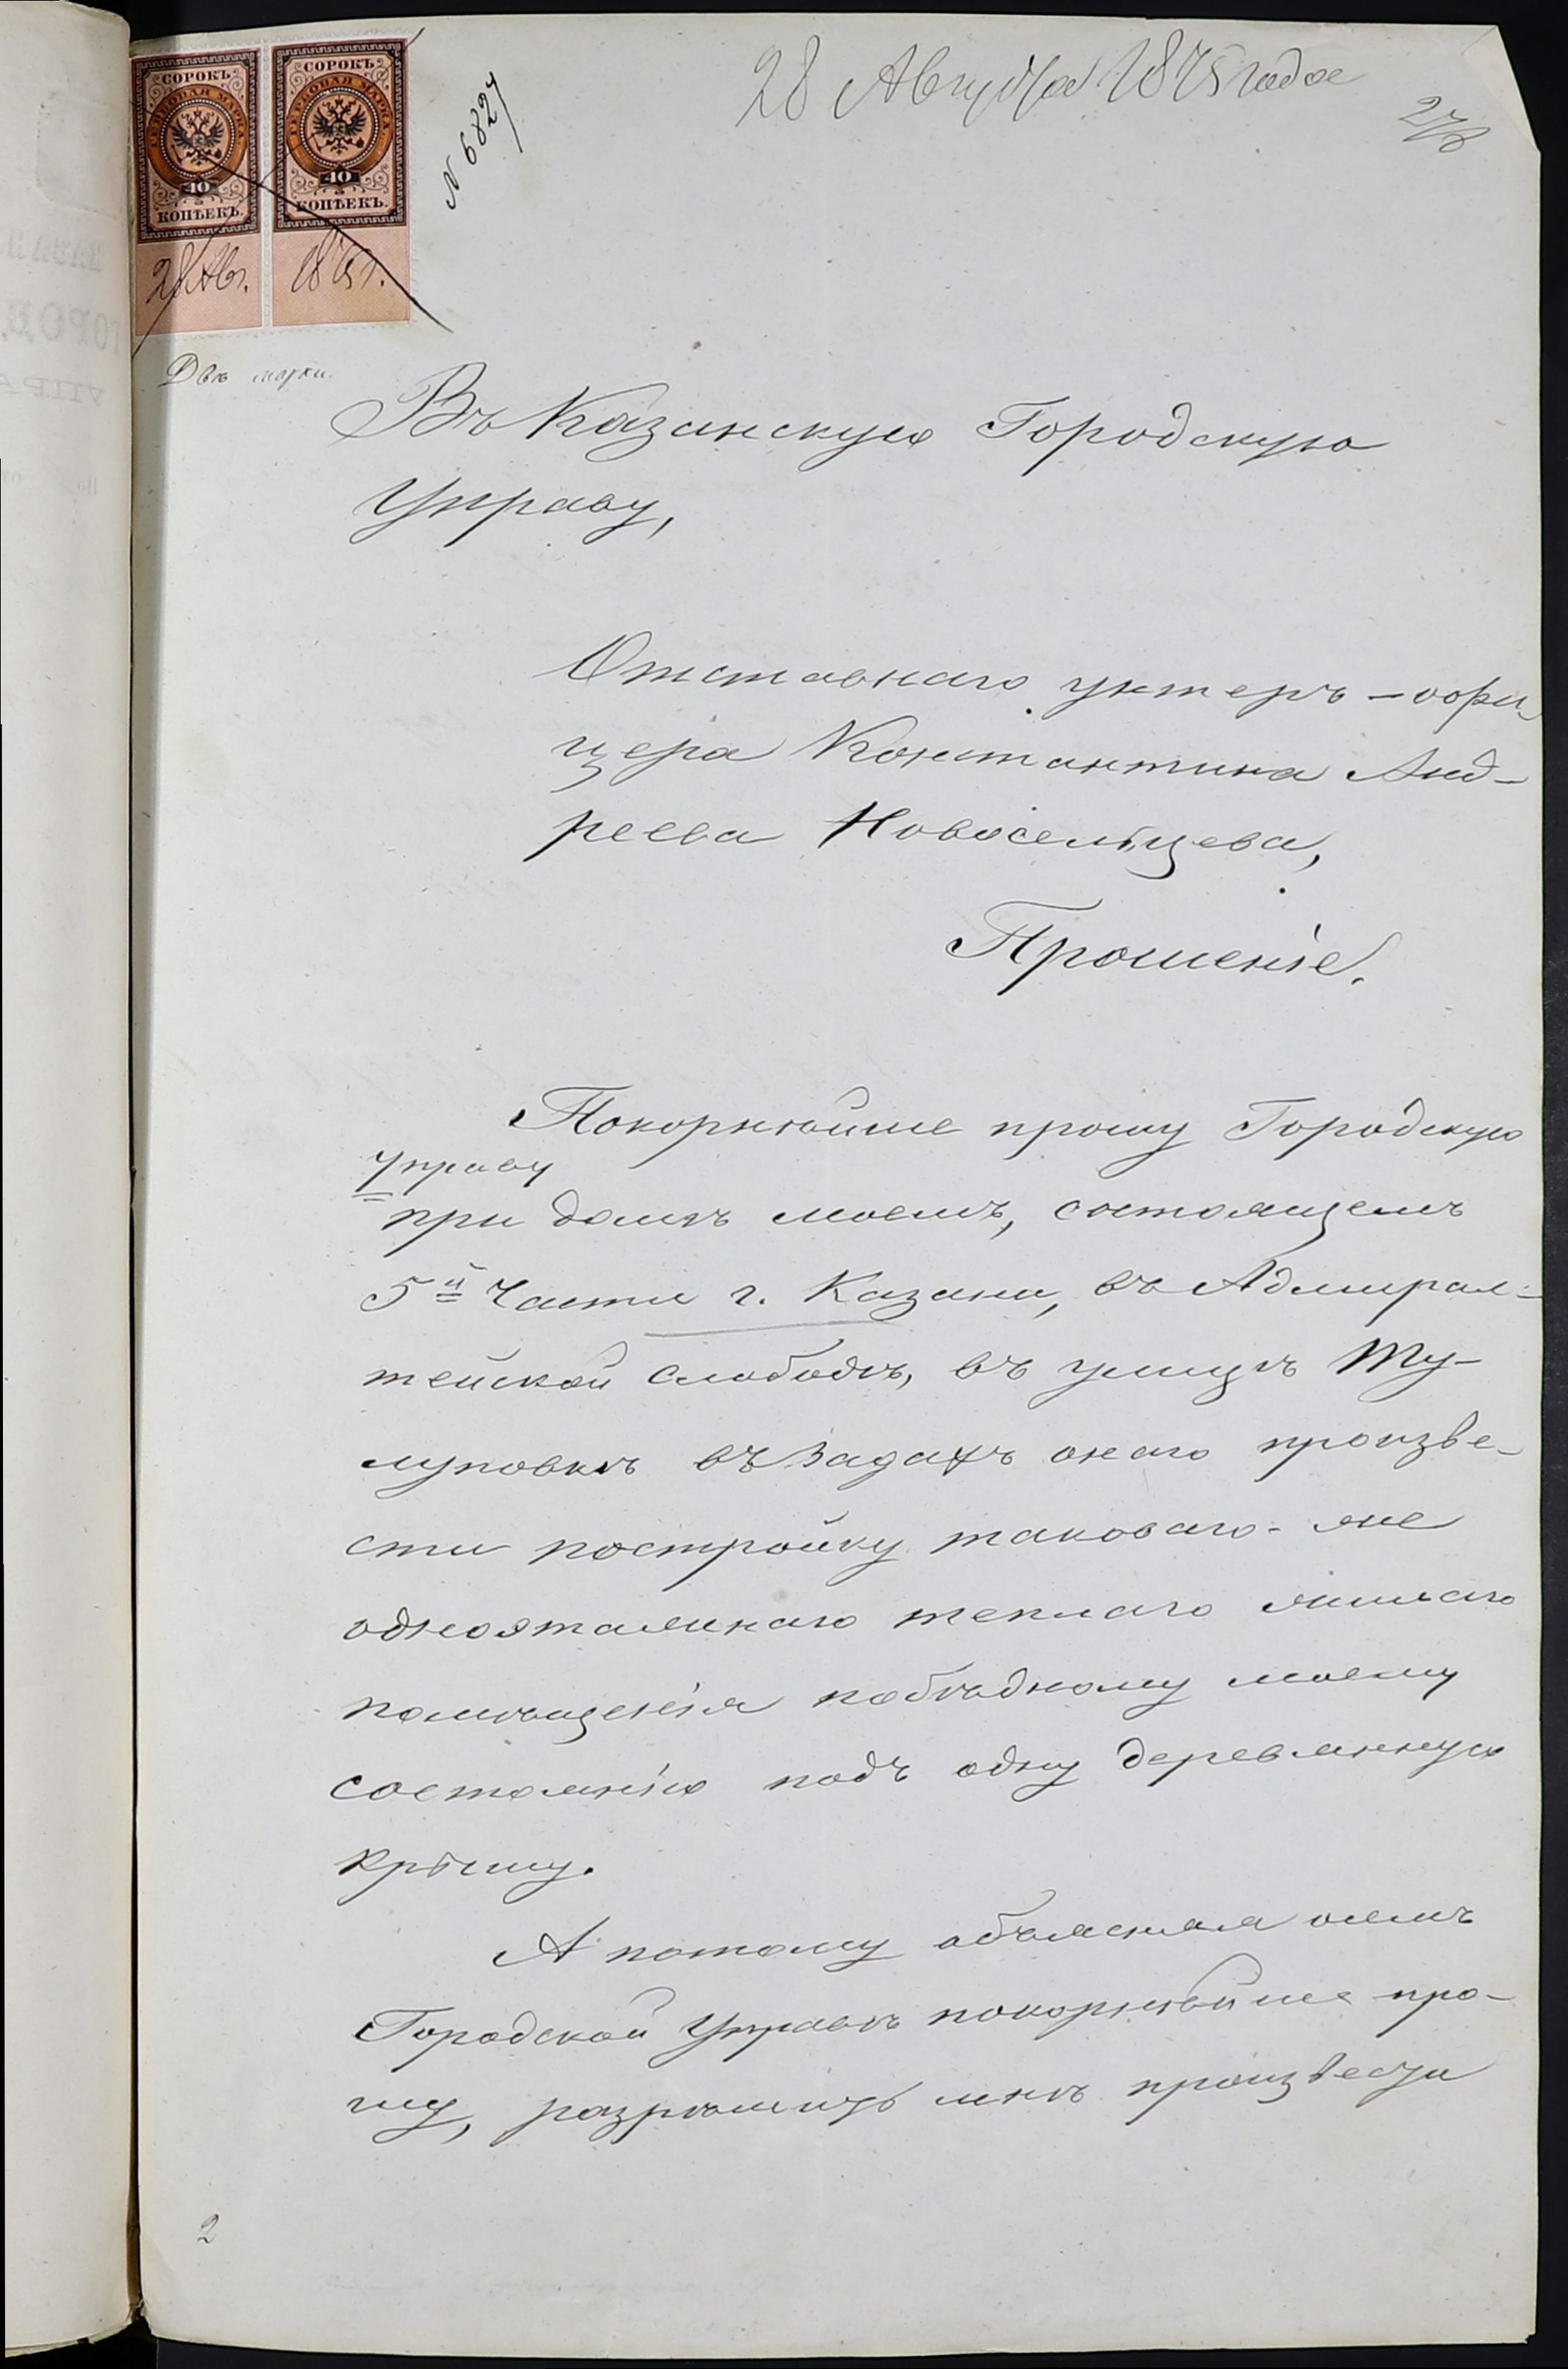 28 Августа 1875 года
273
СОРОКЪ СОРОКЪ
ГЕРБОВАЯ МАРКА ГЕРБОВАЯ МАРКА
40 40
КОПѢЕКЪ. КОПѢЕКЪ.
28 Авг. 1875 г.
N 6827
Двѣ марки.
Въ Казанскую Городскую
Управу,
Отставнаго унтеръ-офи
цера Константина Анд-
реева Новосельцева,
Прошеніе.
Покорнѣйше прошу Городскую
Управу
при домѣ моемъ, состоящемъ
5й Части г. Казани, въ Адмирал-
тейской слободѣ, въ улицѣ Ту-
луповкѣ въ задахъ онаго произве-
сти постройку таковаго-же
одноэтажнаго теплаго жилаго
помѣщенія побѣдному моему
состоянію подъ одну деревянную
крышу.
А потому объясняя осемъ
Городской Управѣ покорнѣйше про-
шу, разрѣшить мнѣ произвести
2